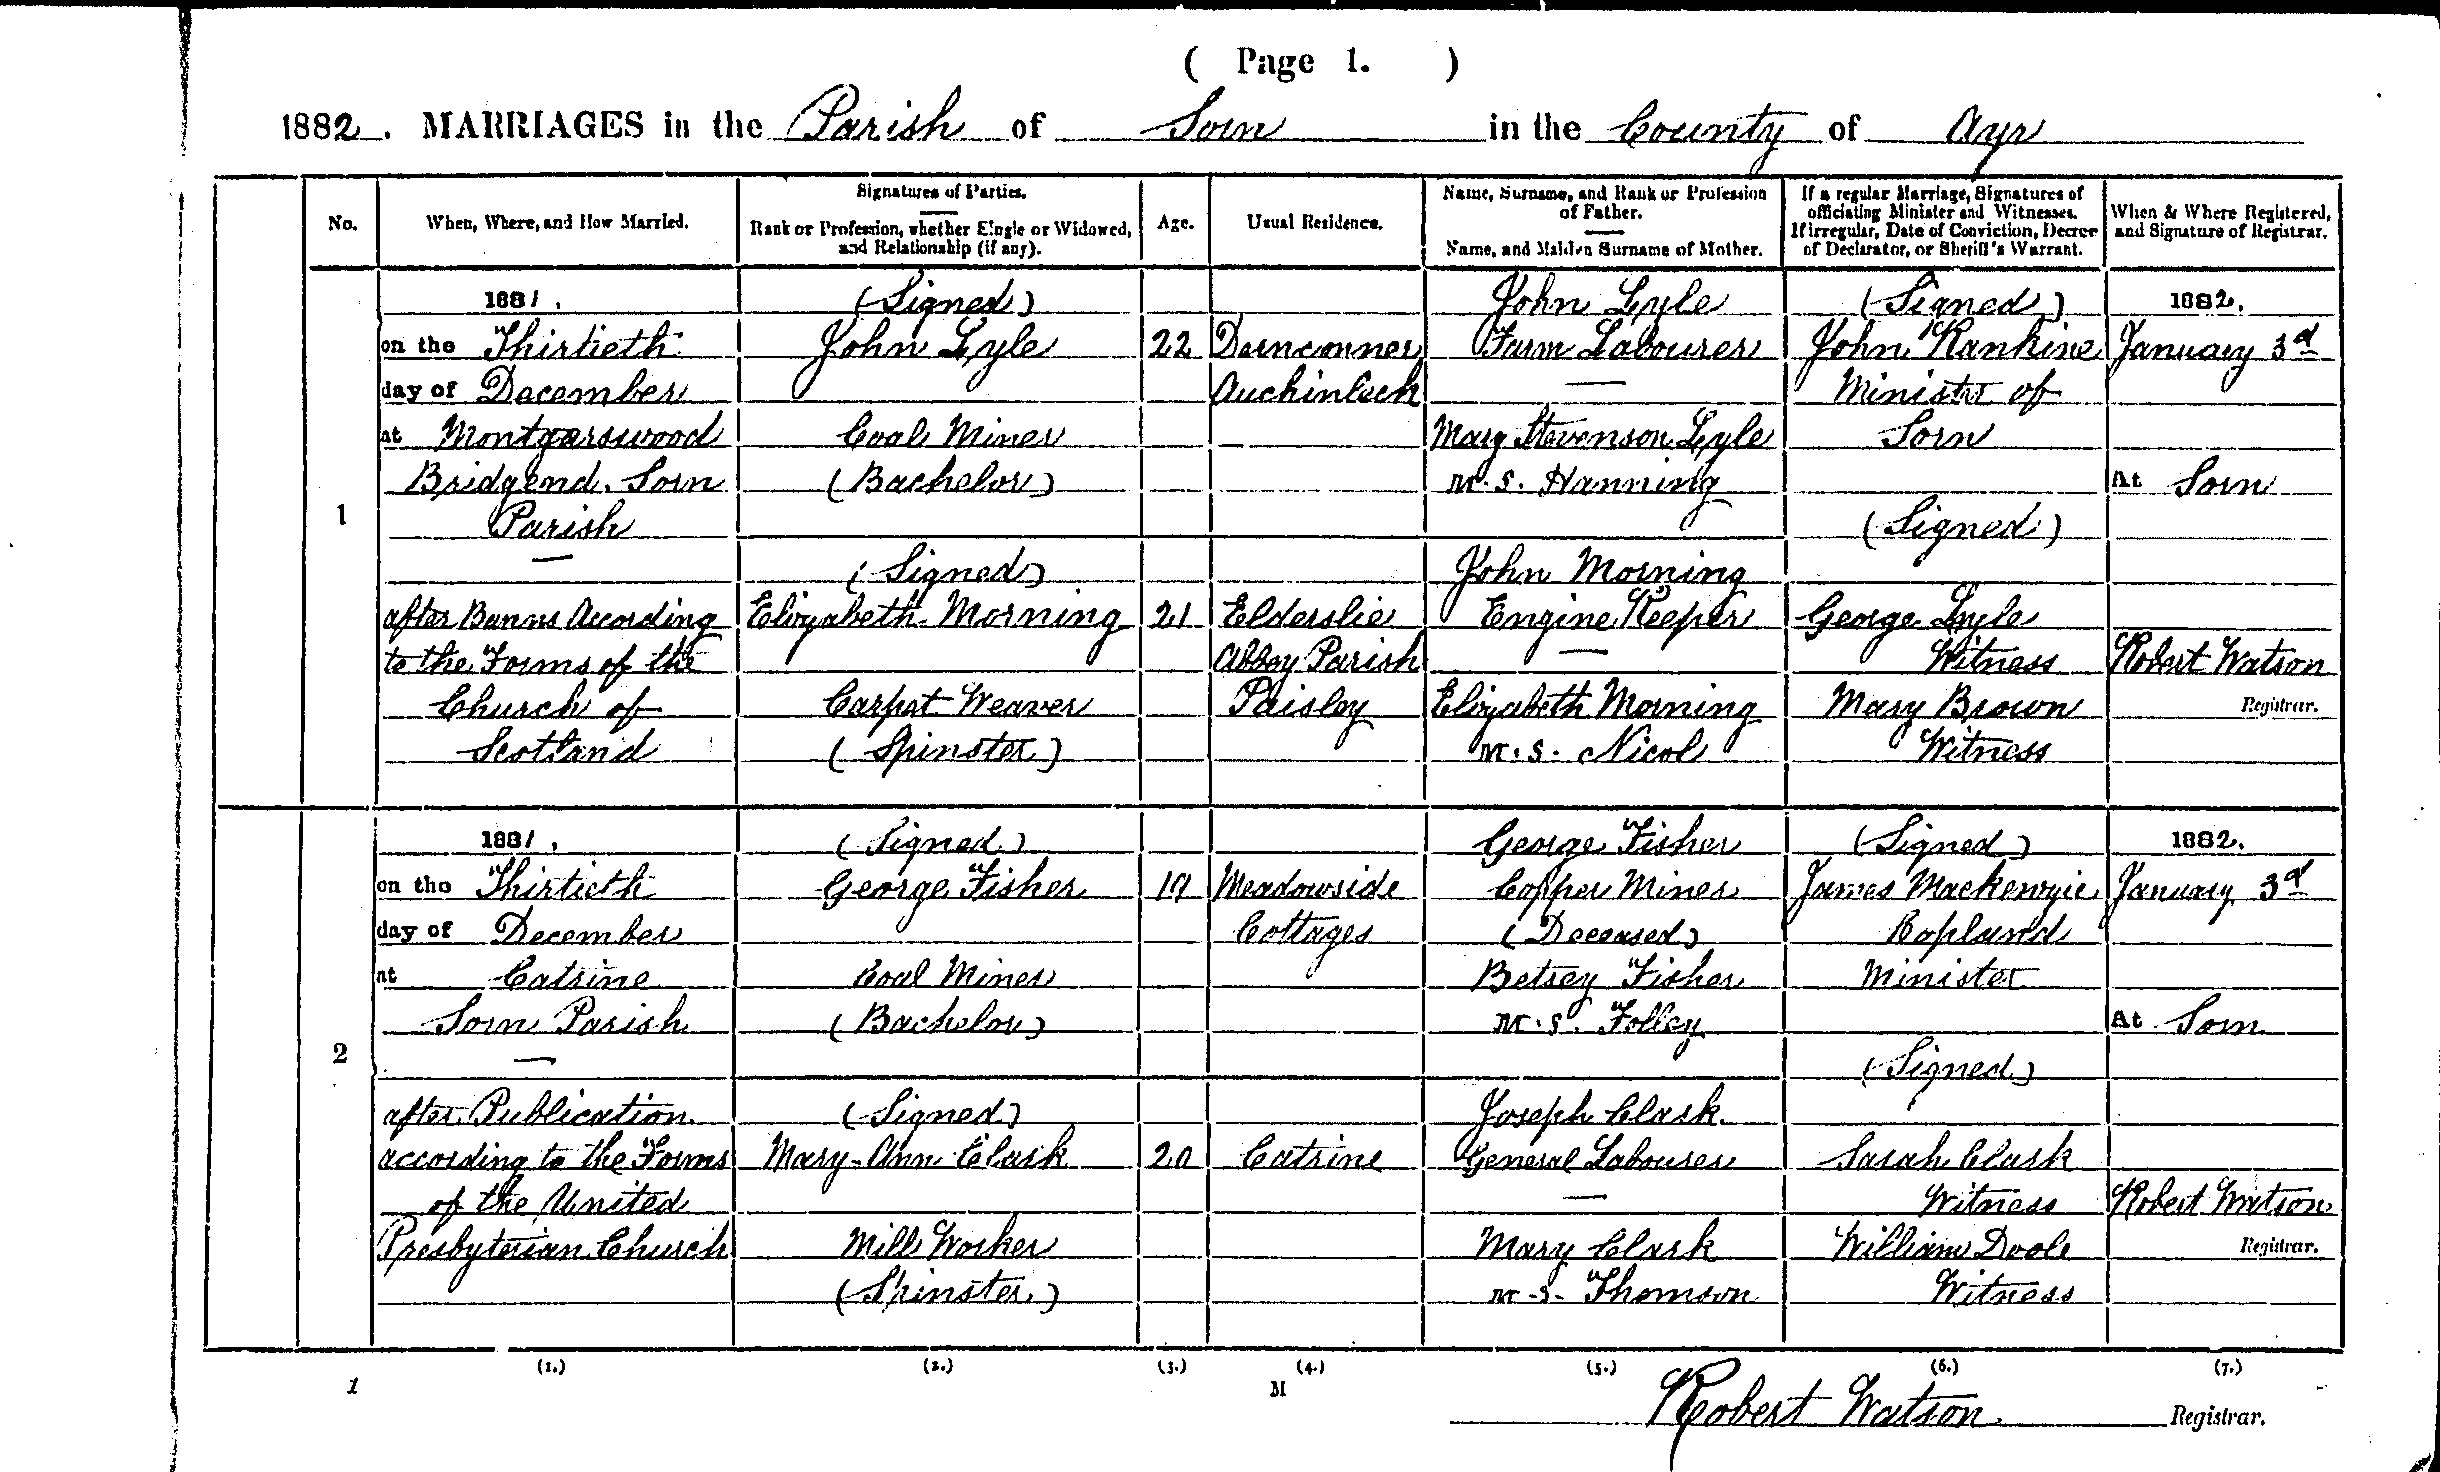 ( Page 1. )
1882. MARRIAGES in the Parish of Sorn in the County of Ayr
No.
When, Where, and How Married.
Signatures of Parties.
Rank or Profession, whether Single or Widowed, and Relationship (if any).
Age.
Usual Residence.
Name, Surname, and Rank or Profession of Father.
Name, and Maiden Surname of Mother.
If a regular Marriage, Signatures of officiating Minister and Witnesses.
If irregular, Date of Conviction, Decree of Declarator, or Sheriff's Warrant.
When & Where Registered, and Signature of Registrar.
1
1881.
on the Thirtieth
day of December
at Montgarswood
Bridgend. Sorn
Parish
after Banns According
to the Forms of the
Church of
Scotland
(Signed)
John Lyle
Coal Miner
(Bachelor)
(Signed)
Elizabeth Morning
Carpet Weaver
(Spinster)
22
21
Dernconner
Auchinleck
Elderslie
Abbey Parish
Paisley
John Lyle
Farm Labourer
Mary Stevenson Lyle
M.S. Hanning
John Morning
Engine Keeper
Elizabeth Morning
M.S. Nicol
(Signed)
John Rankine
Minister of
Sorn
(Signed)
George Lyle
Witness
Mary Brown
Witness
1882.
January 3d
At Sorn
Robert Watson
Registrar.
2
1881.
on the Thirtieth
day of December
at Catrine
Sorn Parish
after Publication
according to the Forms
of the United
Presbyterian Church
(Signed)
George Fisher
Coal Miner
(Bachelor)
(Signed)
Mary-Ann Clark
Mill Worker
(Spinster)
19
20
Meadowside
Cottages
Catrine
George Fisher
Copper Miner
(Deceased)
Betsey Fisher
M.S. Folley
Joseph Clark
General Labourer
Mary Clark
M.S. Thomson
(Signed)
James Mackenzie
Copland
Minister
(Signed)
Sarah Clark
Witness
William Doole
Witness
1882.
January 3d
At Sorn
Robert Watson
Registrar.
(1.) (2.) (3.) (4.) (5.) (6.) (7.)
1 M
Robert Watson Registrar.